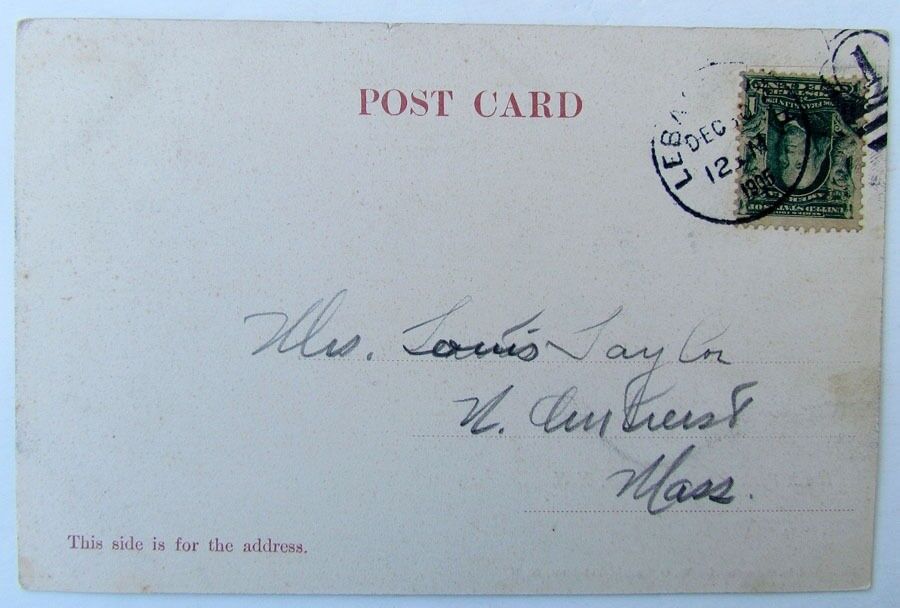 POST CARD
DEC
12 M
1905
Mrs. Louis Taylor
N. Amherst
Mass.
This side is for the address.